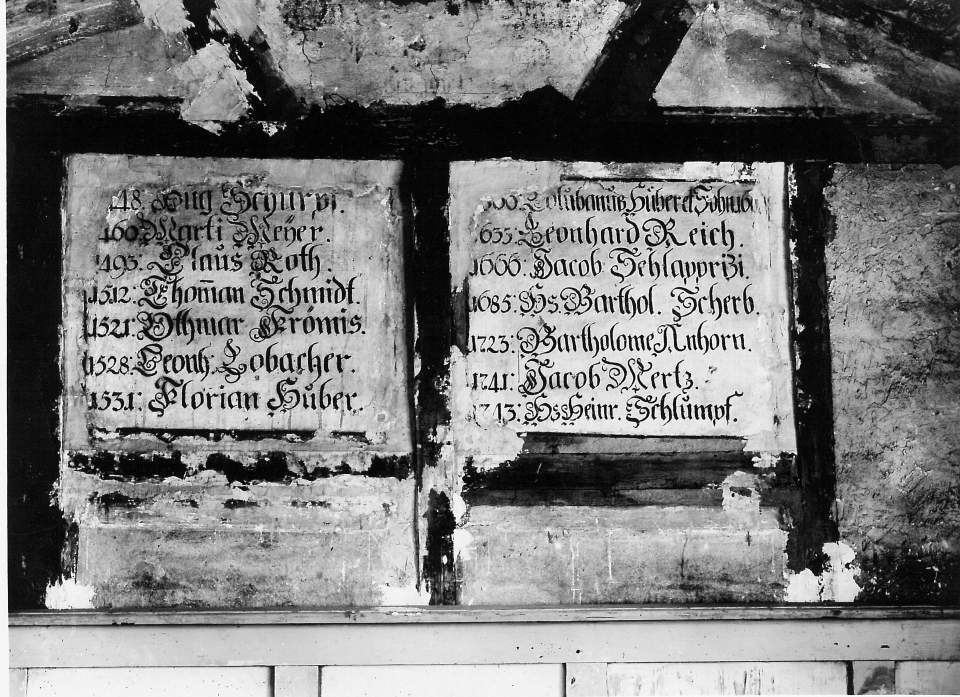 148 Hug Schürpf.
1460 Marti Meÿer.
1493: Claus Roth.
1512: Thom̄an Schmidt.
1521: Othmar Krömis.
1528: Leonh: Lobacher.
1531: Florian Hüber.
Colübanüs Hüber
1635: Leonhard Reich.
1666: Jacob Schlapprizi.
1685: Hs. Barthol. Scherb.
1723: Bartholome Anhorn.
1741: Jacob Mertz.
1743: Hs Heinr. Schlümpf.